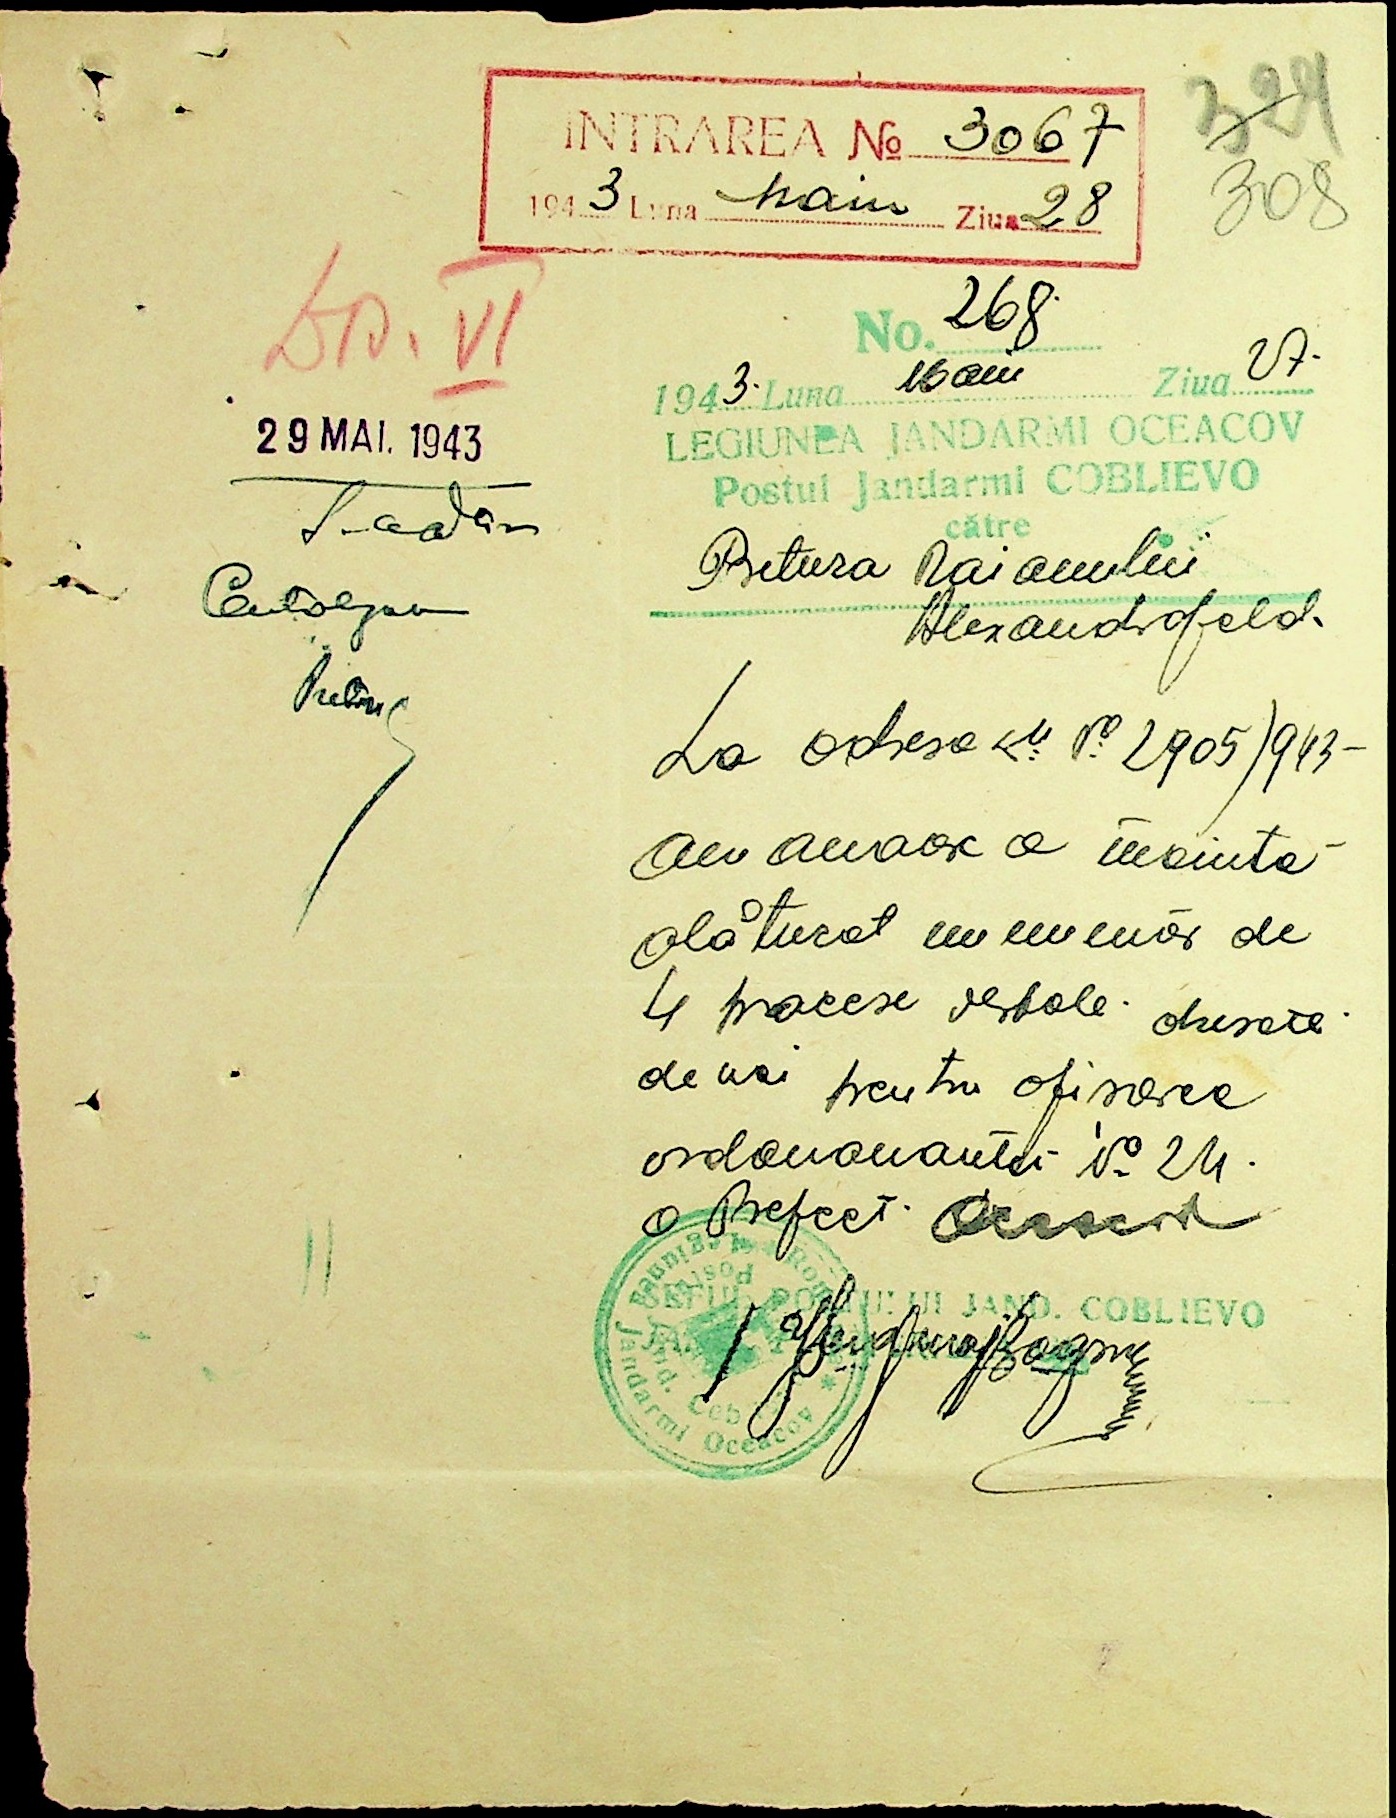 324
308
INTRAREA No 3067
1943 Luna Maiu Ziua 28
Ds. VI
No. 268
1943 Luna Maiu Ziua 27.
29 MAI. 1943
LEGIUNEA JANDARMI OCEACOV
Postul Jandarmi COBLIEVO
către
Pretura Raionului
Alexandrofeld.
La adresa Nº 2905/943
am onoare a înainta
alăturat un număr de
4 procese verbale dresate
de noi pentru afisarea
ordonanantei Nº 24.
a Prefect. Oceacov
SEFUL POSTULUI JAND. COBLIEVO
Jandarmi Oceacov